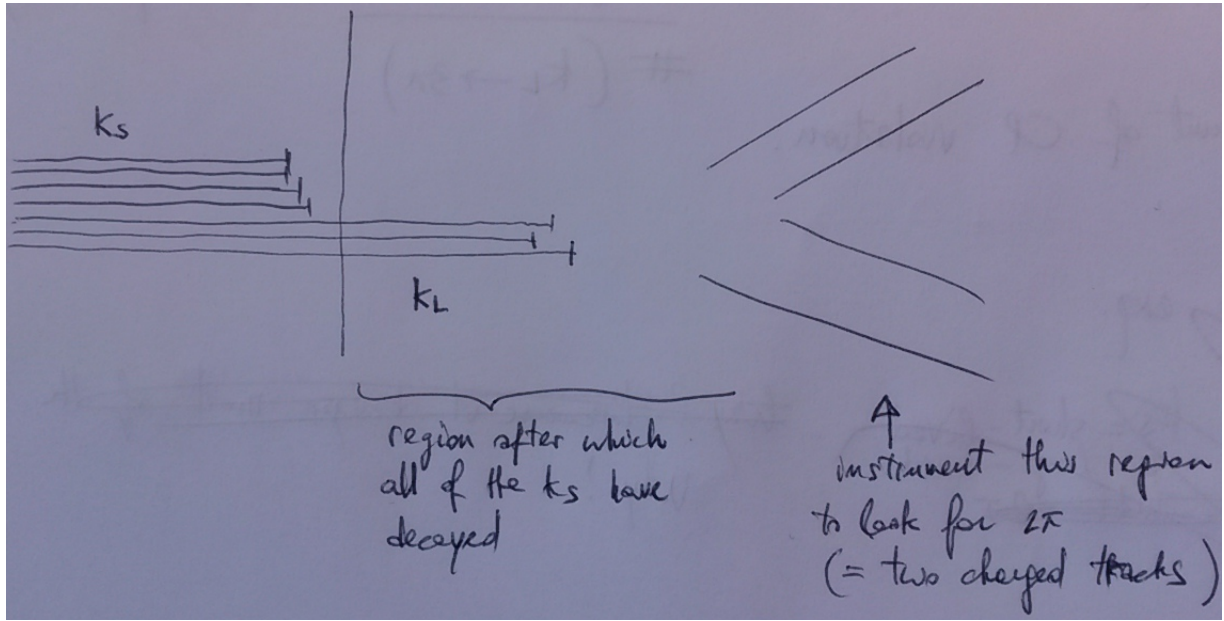 Ks
KL
region after which
all of the Ks have
decayed
instrument this region
to look for 2π
(= two charged tracks)